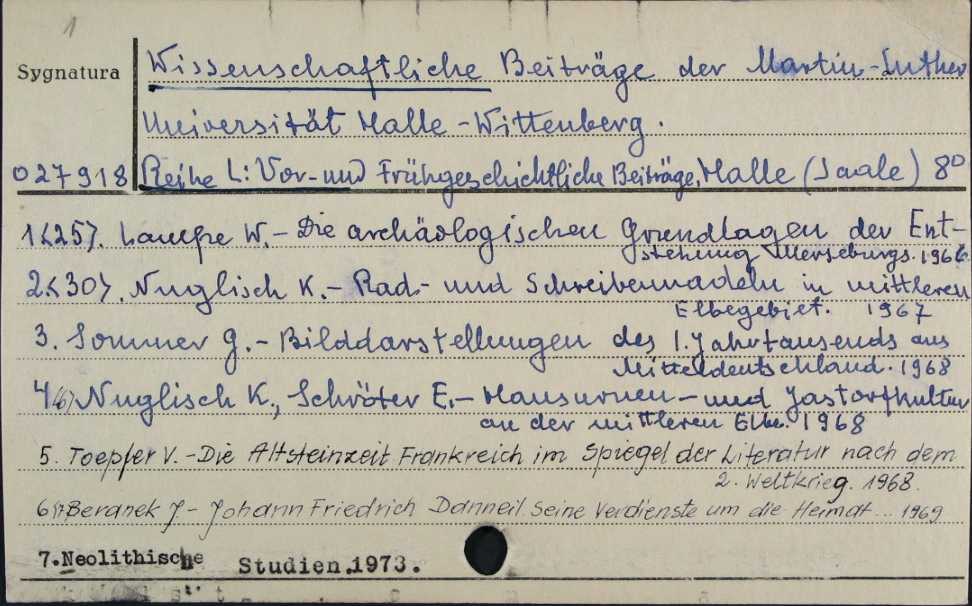 1
Sygnatura
Wissenschaftliche Beiträge der Martin-Luther
Universität Halle-Wittenberg.
027918
Reihe L: Vor- und Frühgeschichtliche Beiträge, Halle (Saale) 8°
1<25>. Lampe W.- Die archäologischen Grundlagen der Ent-
stehung Merseburgs. 1966
2<30>. Nuglisch K.- Rad- und Schreibennadeln in mittleren
Elbegebiet. 1967
3. Sommer G.- Bilddarstellungen des 1. Jahrtausends aus
Mitteldeutschland. 1968
4(6) Nuglisch K., Schröter E.- Hausurnen- und Jastorfkultur
an der mittleren Elbe. 1968
5. Toepfer V.- Die Altsteinzeit Frankreich im Spiegel der Literatur nach dem
2. Weltkrieg. 1968.
6 Beranek J- Johann Friedrich Danneil. Seine Verdienste um die Heimat... 1969
7. Neolithische Studien. 1973.